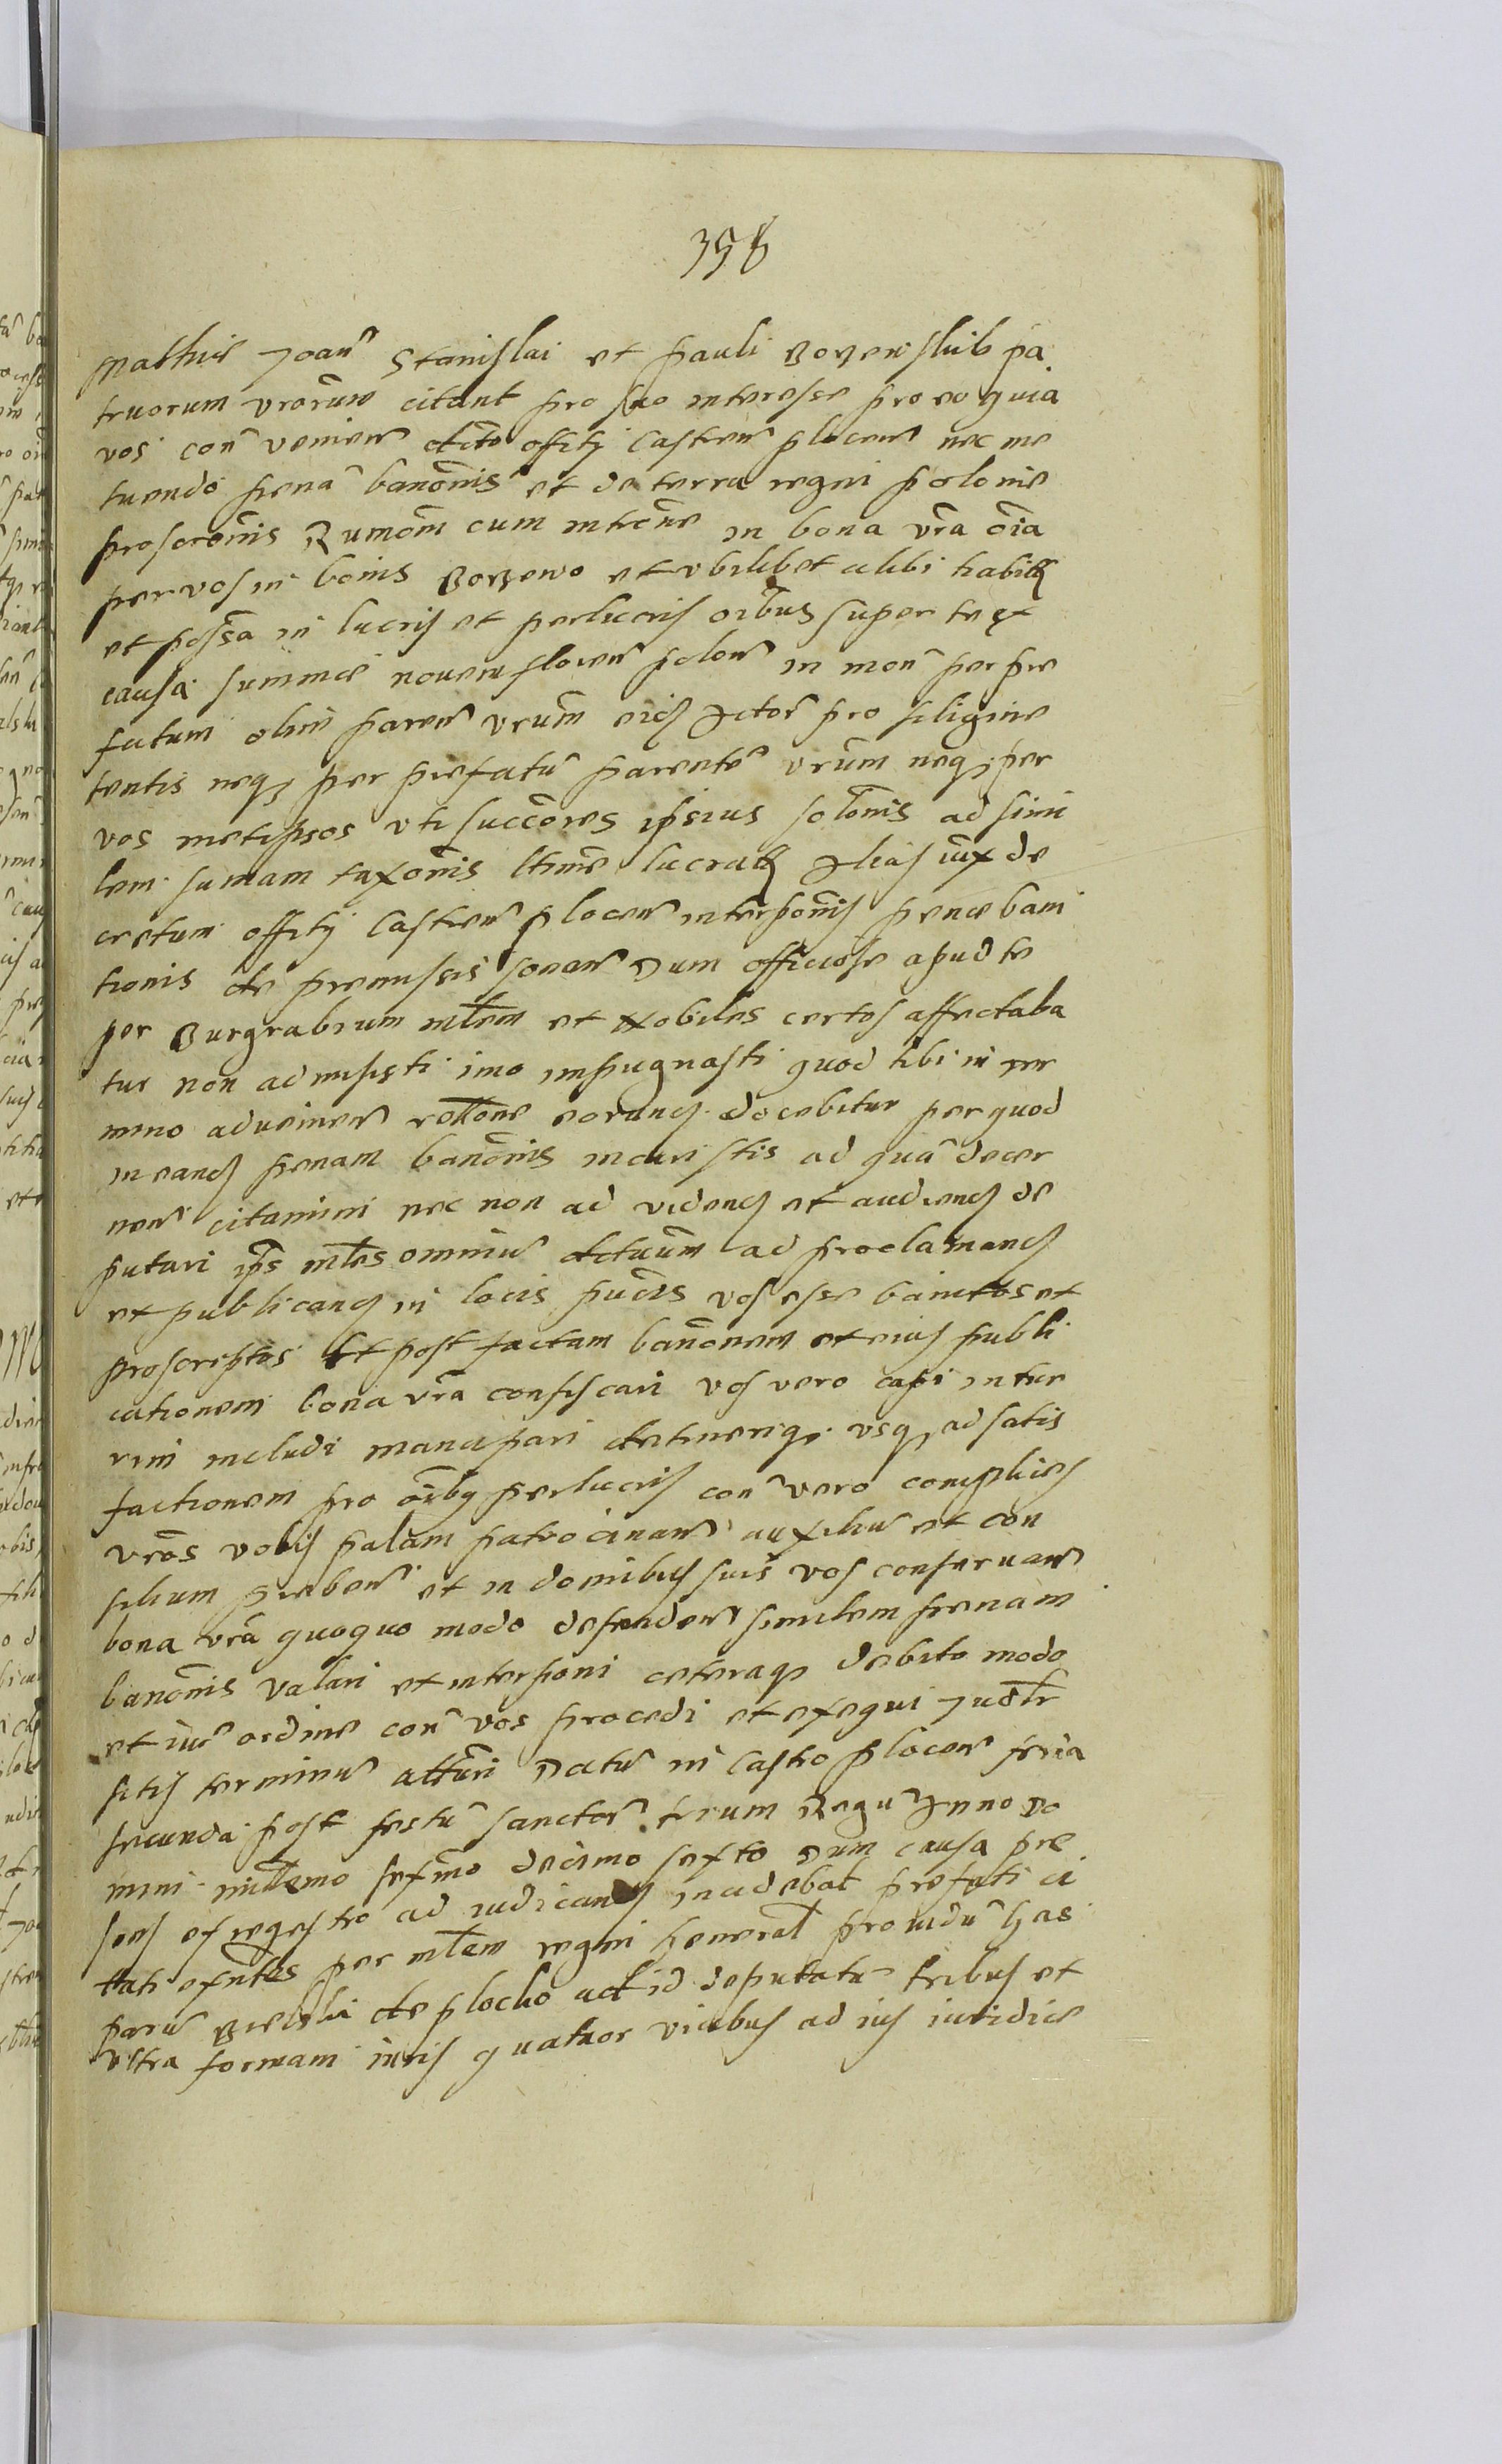 356
Mathie Joan̄ Stanislai et Pauli Bozewskich pa
truorum vrōrum citant pro suo interesse pro eo quia
vos con̄ venien̄ dicto offitÿ Castren̄ plocen̄ nec me
tuendo pena banōnis et de terra regni polonie
proscrōnis Rumōm cum intrōne in bona vr̄a oīa
per vos in bonis Bozewo et vbilibet alibi habit
et possā in lucris et perlucris oībus super te ex
causa summe novem floren̄ polon̄ in mon̄ per pre
fatum olim paren̄ vrūm eidem Actori pro siligine
tentis neq per prefatū parente vrūm neq per
vos metipsos vti successōres ipsius solōnis ad simi
lem sumam taxōnis ltime lucrat Alias iux de
cretum offitÿ Castren̄ plocen̄ interpōnis pene bani
tionis de premissis sonan̄ Dum officiose apud te
per Burgrabium mltem et Nobiles certos affectaba
tur non admisisti imo impugnasti quod tibi in ter
mino advenien̄ rellōne eorund docebitur per quod
in eand penam banōnis incuristis ad quā decer
nen̄ citamini nec non ad videnđ et audienđ de
putari ips mltes omniū dictūm ad proclamanđ
et publicanđ in locis pucīs vos esse banitos et
proscriptos Et post factam banōnem et eius publi
cationem bona vr̄a confiscari vos vero capi in tur
rim includi mancipari detineriq vsq ad satis
factionem pro oībq perlucris con̄ vero complices
vrōs vobis palam patrocinan̄ auxiliū et con
silium preben̄ et in domibus suis vos conseruan̄
bona vr̄a quoquo modo defenden̄ similem penam
banōnis valari et interponi ceteraq debito modo
et iuris ordine con̄ vos procedi et exequi Judltr
sitis terminū attūri Datū in Castro plocen̄ feria
secunda post festū sanctor trium Regū Anno do
mini millemo sexmo decimo sexto Dum causa pre
sens ex regestro ad iudicand incidebat prefati ci
tati exntes per mltem regni general providū Gas
parū Bielski de plocko ad id deputatū tribus et
vltra formam iuris quatuor vicibus ad ius iuridice